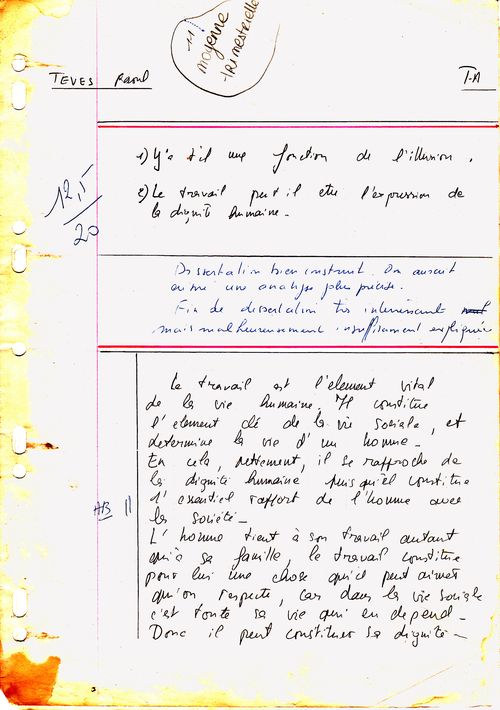 11
moyenne
trimestrielle
TEVES Raoul
T.A
1) Y'a t'il une fonction de l'illusion.
2) Le travail peut il etre l'expression de
la dignité humaine.
12,5
20
Dissertation bien construit. On aurait
aimé une analyse plus précise.
Fin de dissertation très intéressante
mais malheureusement insuffisamment expliquée
Le travail est l'element vital
de la vie humaine. Il constitue
l'element clé de la vie sociale, et
determine la vie d'un homme.
En cela, nettement, il se rapproche de
la dignité humaine puisqu'il constitue
l'essentiel rapport de l'homme avec
la société.
AB
L'homme tient à son travail autant
qu'à sa famille, le travail constitue
pour lui une chose qu'il peut aimer
qu'on respecte, car dans la vie sociale
c'est toute sa vie qui en depend.
Donc il peut constituer sa dignité.